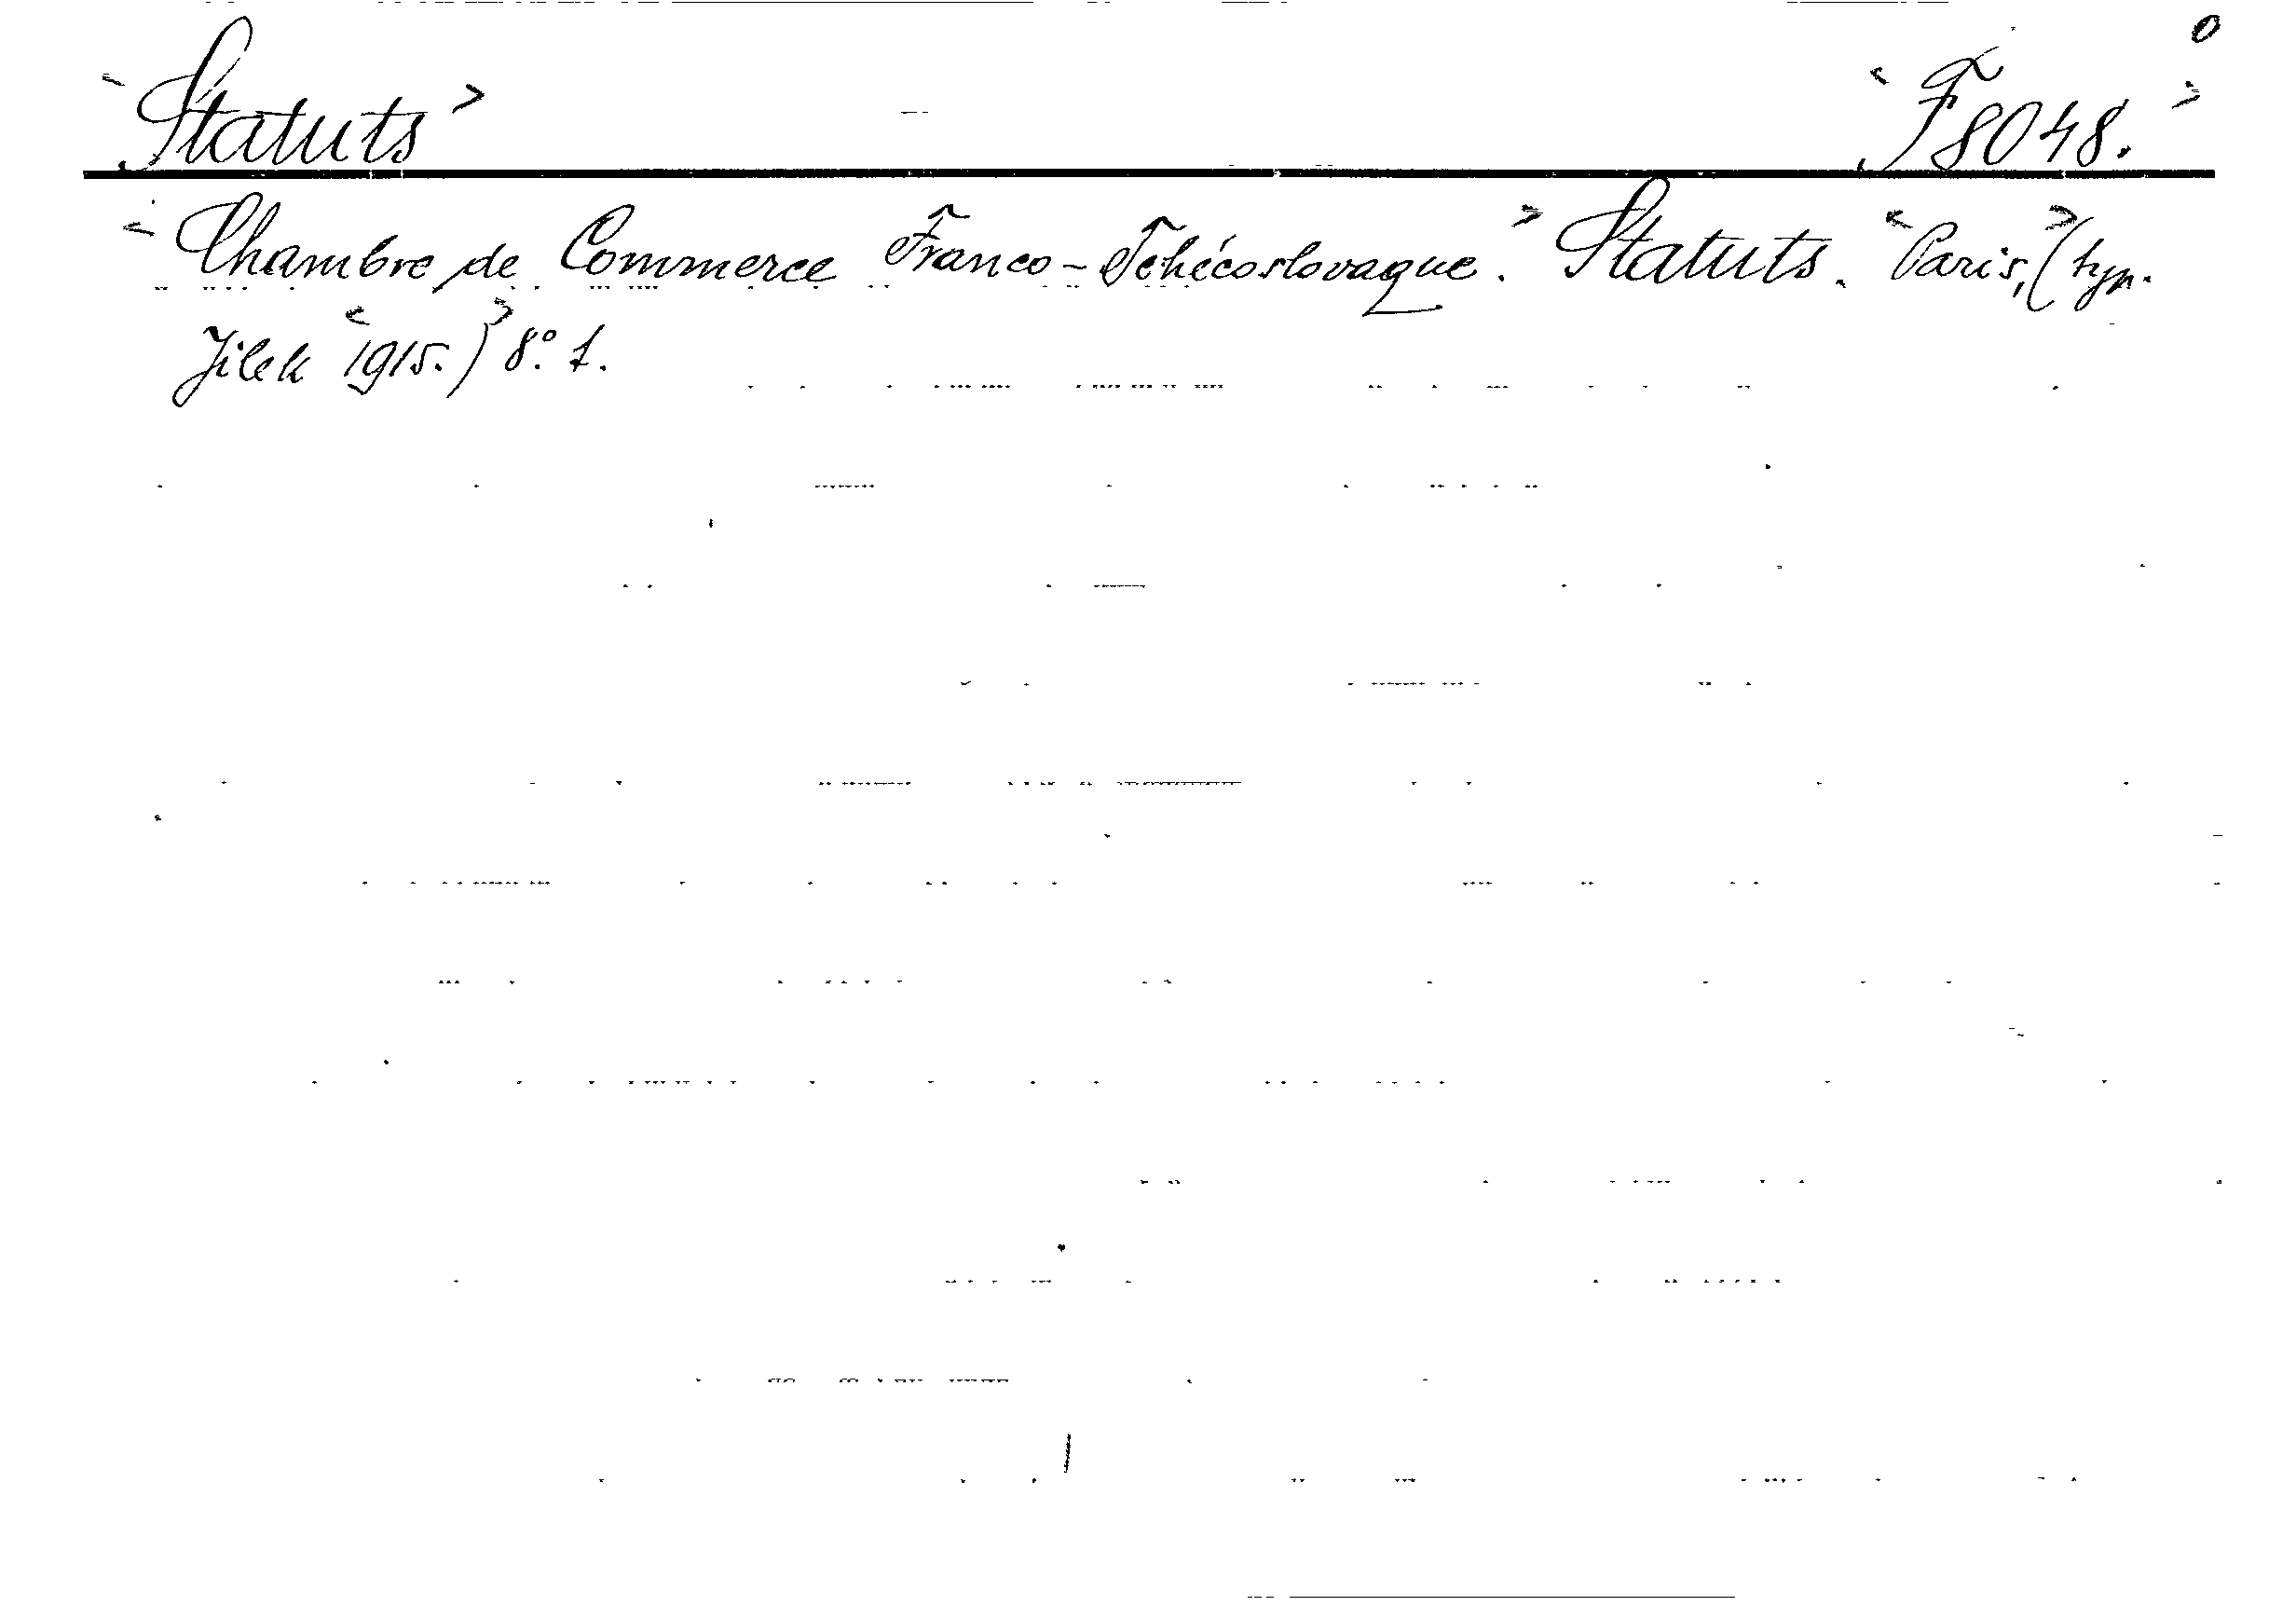 "Statuts" "F 8048."
"Chambre de Commerce Franco-Tchécoslovaque." Statuts. "Paris," (typ.
Jilek "1915.)" 8°. 1.